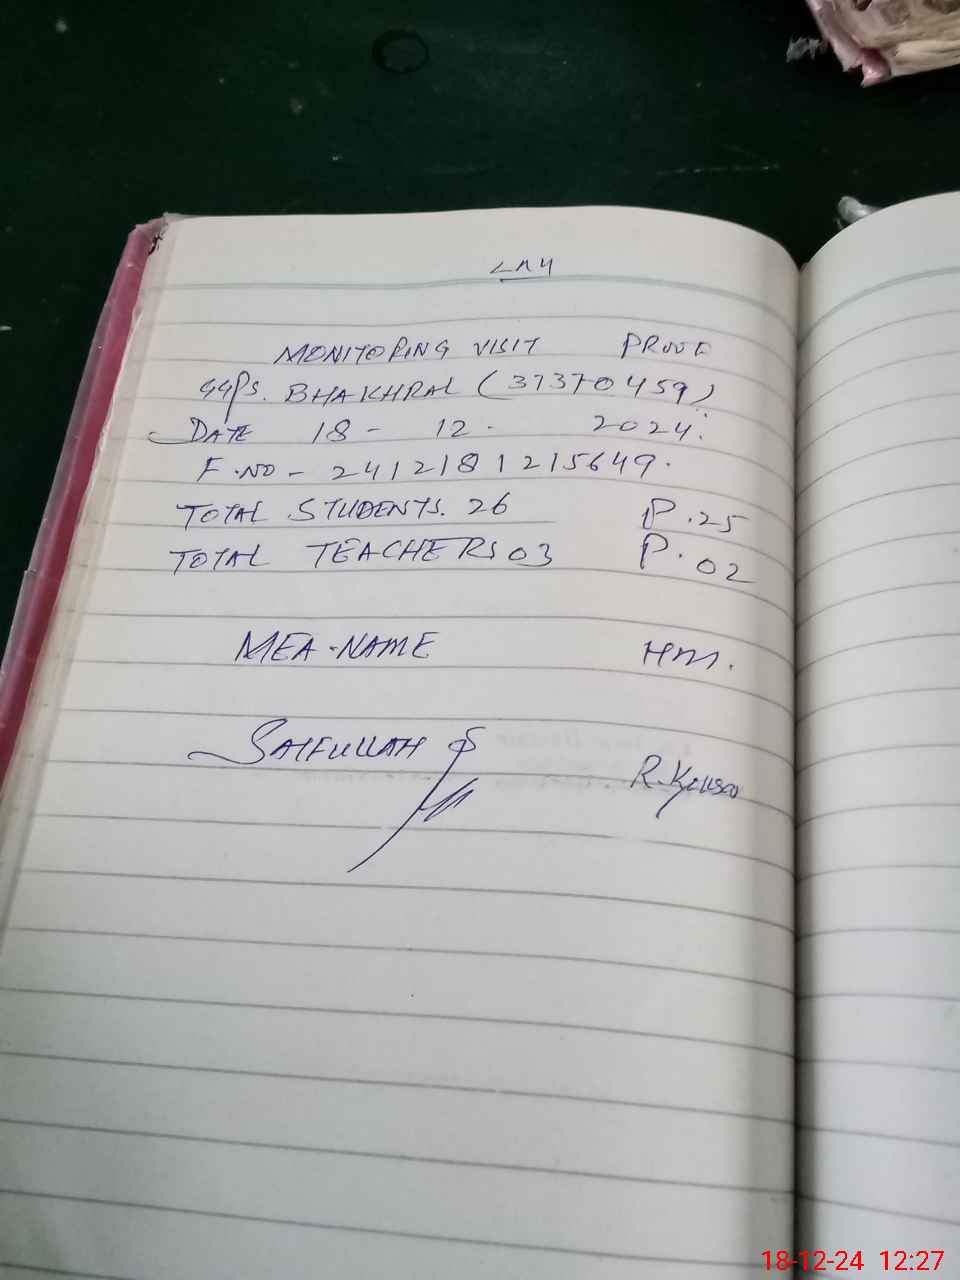 MONITORING VISIT PROOF
GGPS. BHAKHRAL (37370459)
DATE 18 - 12 - 2024.
F.NO - 2412181215649.
TOTAL STUDENTS. 26 P.25
TOTAL TEACHERS 03 P.02
MEA-NAME HM.
SAIFULLAH R.
18-12-24 12:27